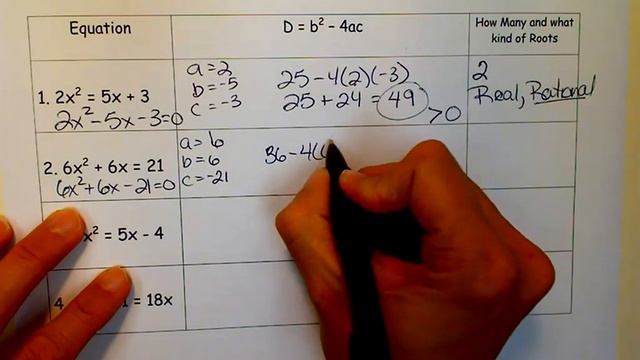 Equation
D = b² - 4ac
How Many and what
kind of Roots
1. 2x² = 5x + 3
2x²-5x-3=0
a=2
b=-5
c=-3
25-4(2)(-3)
25+24=49
>0
2
Real, Rational
2. 6x² + 6x = 21
6x²+6x-21=0
a=6
b=6
c=-21
36-4(
x² = 5x - 4
4
= 18x